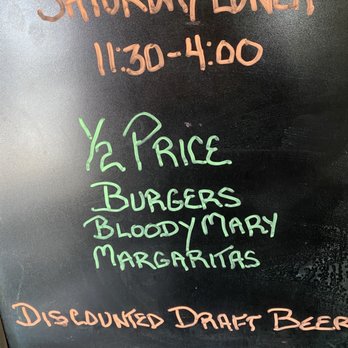 SATURDAY LUNCH
11:30-4:00
1/2 PRICE
BURGERS
BLOODY MARY
MARGARITAS
DISCOUNTED DRAFT BEER